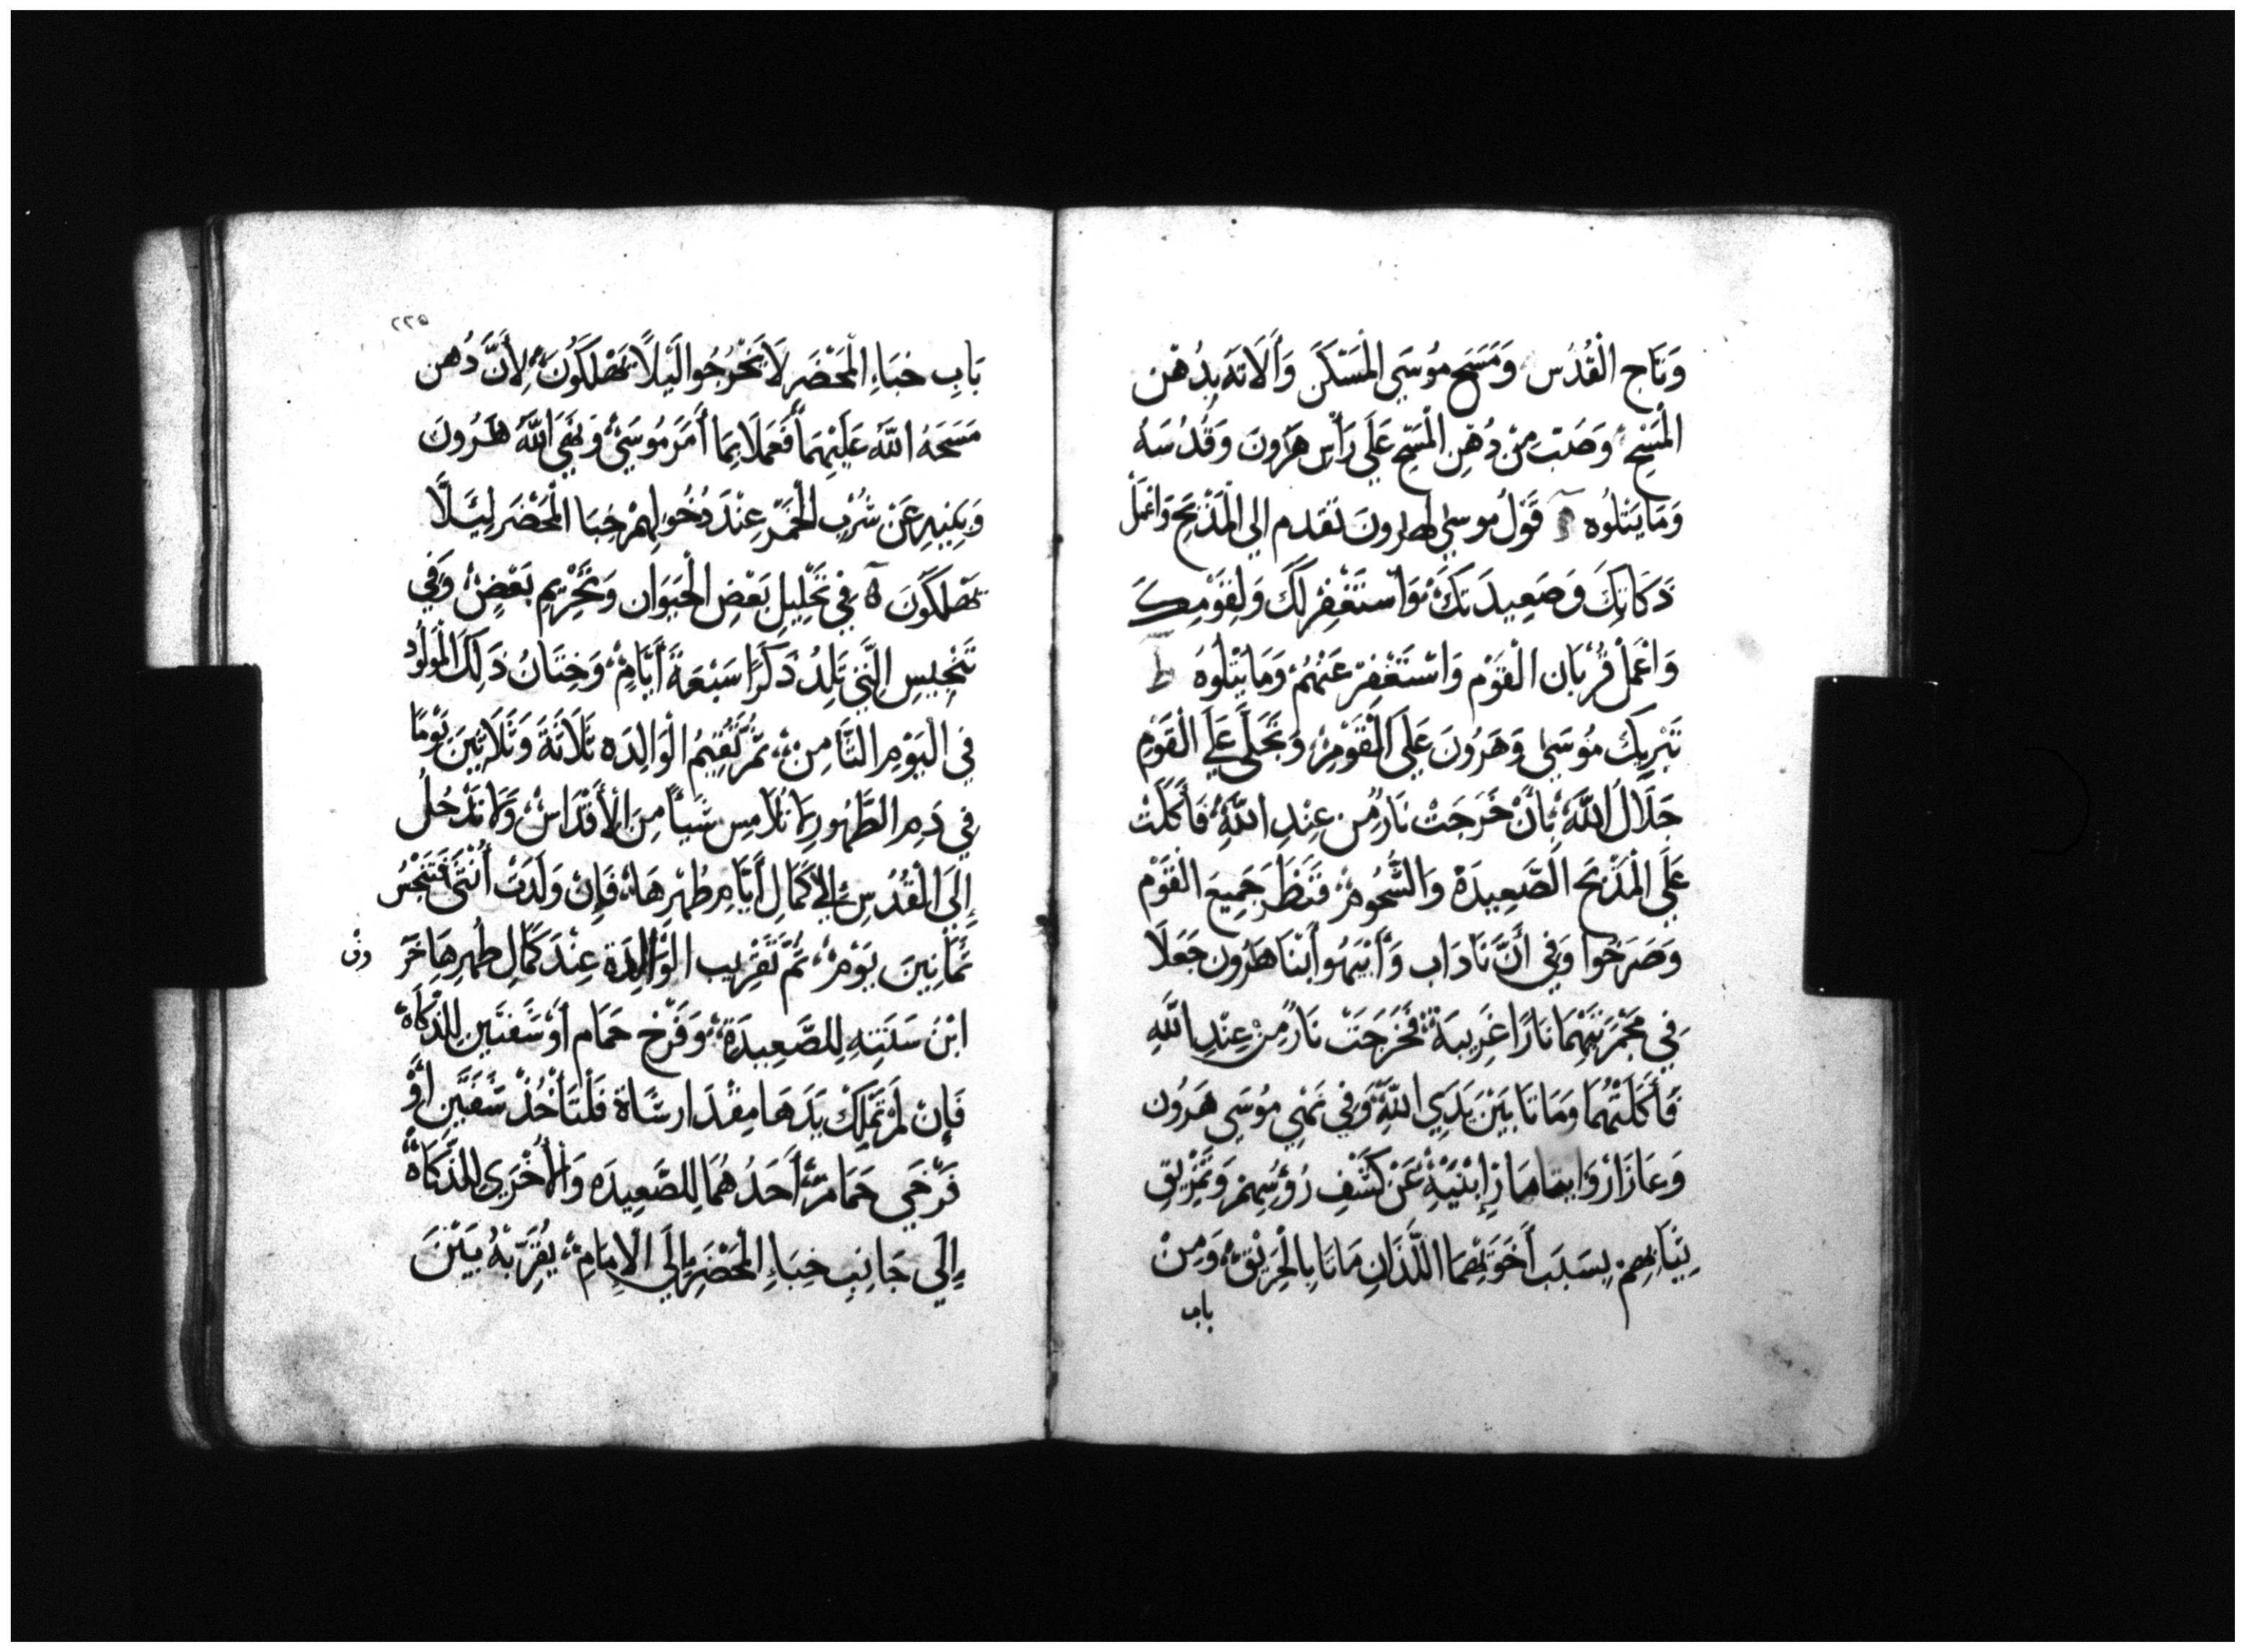 وَتَاج الْقُدُس وَمَسَحَ مُوسَى الْمَسْكَن وَأَلَاتَهُ بِدُهْن
الْمَسْحِ وَصَبَّ مِنْ دُهْنِ الْمَسْحِ عَلَى رَأْسِ هَرُونَ وَقَدَّسَهُ
وَمَا يَتْلُوه قَوْلُ موسى لهرونَ تقدم الى الْمَذْبَح وَاعْمَلْ
ذَكَاتِكَ وَصَعِيدَتَكَ وَاسْتَغْفِرْ لَكَ وَلِقَوْمِكَ
وَاعْمَلْ قُرْبَان الْقَوْم وَاسْتَغْفِرْ عَنْهُمْ وَمَا يَتْلُوهُ ط
تَبْرِيك مُوسَى وَهَرُونَ عَلَى الْقَوْمِ وَتَجَلَّى عَلَى الْقَوْمِ
جَلَالَ اللَّهِ بِأَنْ خَرَجَتْ نَارٌ مِن عِنْدِ اللَّهِ فَأَكَلَتْ
عَلَى الْمَذْبَح الصَّعِيدَة وَالشُّحُومْ فَنَظَرَ جَمِيعَ الْقَوْم
وَصَرَخُوا وَفِي أَنَّ نَادَاب وَأَبِيهُو أَبْنَا هَرُون جَعَلَا
فِي مَجْمَرَتَيْهِمَا نَارًا غَرِيبَةْ فَخَرَجَتْ نَارٌ مِنْ عِنْدِ اللَّهِ
فَأَكَلَتْهُمَا وَمَاتَا بَيْنَ يَدَيِ اللَّهِ وَفِي نَهْيِ مُوسَى هَرُون
وَعَازَارْ وَايتامَارْ إِبْنَيْهِ عَنْ كَشْفِ رُؤُسِهِمْ وَتَمْزِيق
ثِيَابِهِمْ بِسَبَب أَخَوَيْهِمَا اللَّذَانِ مَاتَا بِالْحَرِيْق وَمِنْ
باب
٢٢٥
بَابِ خِبَاءِ الْمَحْضَر لَا يَخْرُجُوا لَيْلًا يَهْلَكُونَ لِأَنَّ دُهن
مَسَحَهُ اللَّهُ عَلَيْهِمَا فَعَمَلَا بِمَا أَمَرَ مُوسَى وَنَهَى اللَّهُ هَرُونَ
وَبَنِيهِ عَنْ شُرْبِ الْخَمْرِ عِنْدَ دُخُولِهِمْ خِبَا الْمَحْضَر لِئَلَّا
يَهْلَكُونَ فِي تَحْلِيلِ بَعْضِ الْحَيَوَان وَتَحْرِيمِ بَعْضٍ وَفِي
تَنْجِيسِ الَّتِي تَلِدُ ذَكَرًا سَبْعَةَ أَيَّامٍ وَخِتَانُ ذَلِكَ الْمَوْلُود
فِي الْيَوْمِ الثَّامِنْ ثُمَّ تُقِيمُ الْوَالِدَه ثَلَاثَةَ وَثَلَاثِينَ يَوْمًا
فِي دَمِ الطَّهُورِ لَا تُلَامِس شَيْأً مِنَ الْأَقْدَاسْ وَلَا تَدْخُلُ
إِلَى الْقُدُسِ إِلَى كَمَالِ أَيَّامِ طُهْرِهَا فَإِنْ وَلَدَتْ أُنْثَى فَتَنْجُسُ
ثَمَانِينَ يَوْمْ ثُمَّ تَقْرِيب الْوَالِدَة عِنْدَ كَمَالِ طُهْرِهَا خَرَ وف
ابْنَ سَنَتِهِ لِلصَّعِيدَةْ وَفَرْخ حَمَام أَوْ شَفنَين لِلذَّكَاهْ
فَإِنْ لَمْ تَمْلِكْ يَدَهَا مِقْدَار شَاة فَلْتَأْخُذْ شَفنَيْن أَوْ
فَرْخَي حَمَامْ أَحَدُهُمَا لِلصَّعِيدَه وَالْأُخْرَى لِلذَّكَاةْ
إِلَى جَانِبِ خِبَاءِ الْمَحْضَرِ إِلَى الْإِمَامْ يُقَرِّبَهُ بَيْنَ